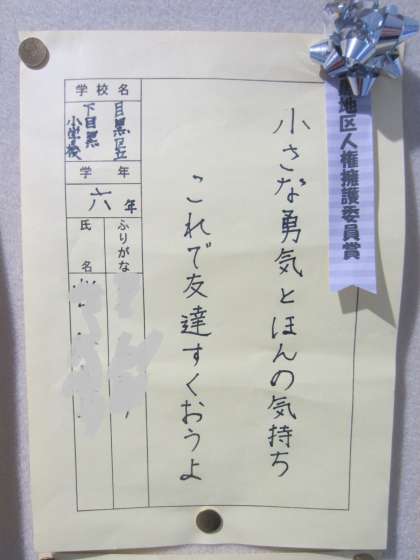 地区人権擁護委員賞
小さな勇気とほんの気持ち
これで友達すくおうよ
学校名
目黒区立
下目黒
小学校
学年
六年
ふりがな
氏名